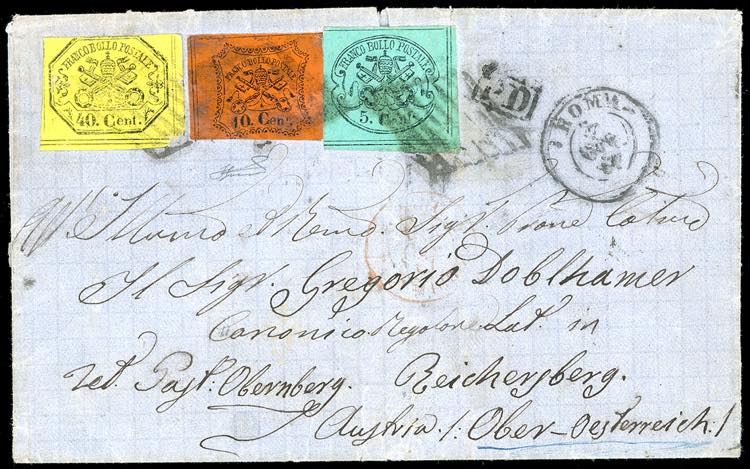 FRANCO BOLLO POSTALE
40. Cent.
FRANCO BOLLO POSTALE
10. Cent.
FRANCO BOLLO POSTALE
5. Cent.
PD
ROMA
Sigr.
Il Sigr. Gregorio Doblhamer
Canonico Regolare Lat. in
Post: Obernberg. Reichersberg.
Austria /: Ober-Oesterreich:/